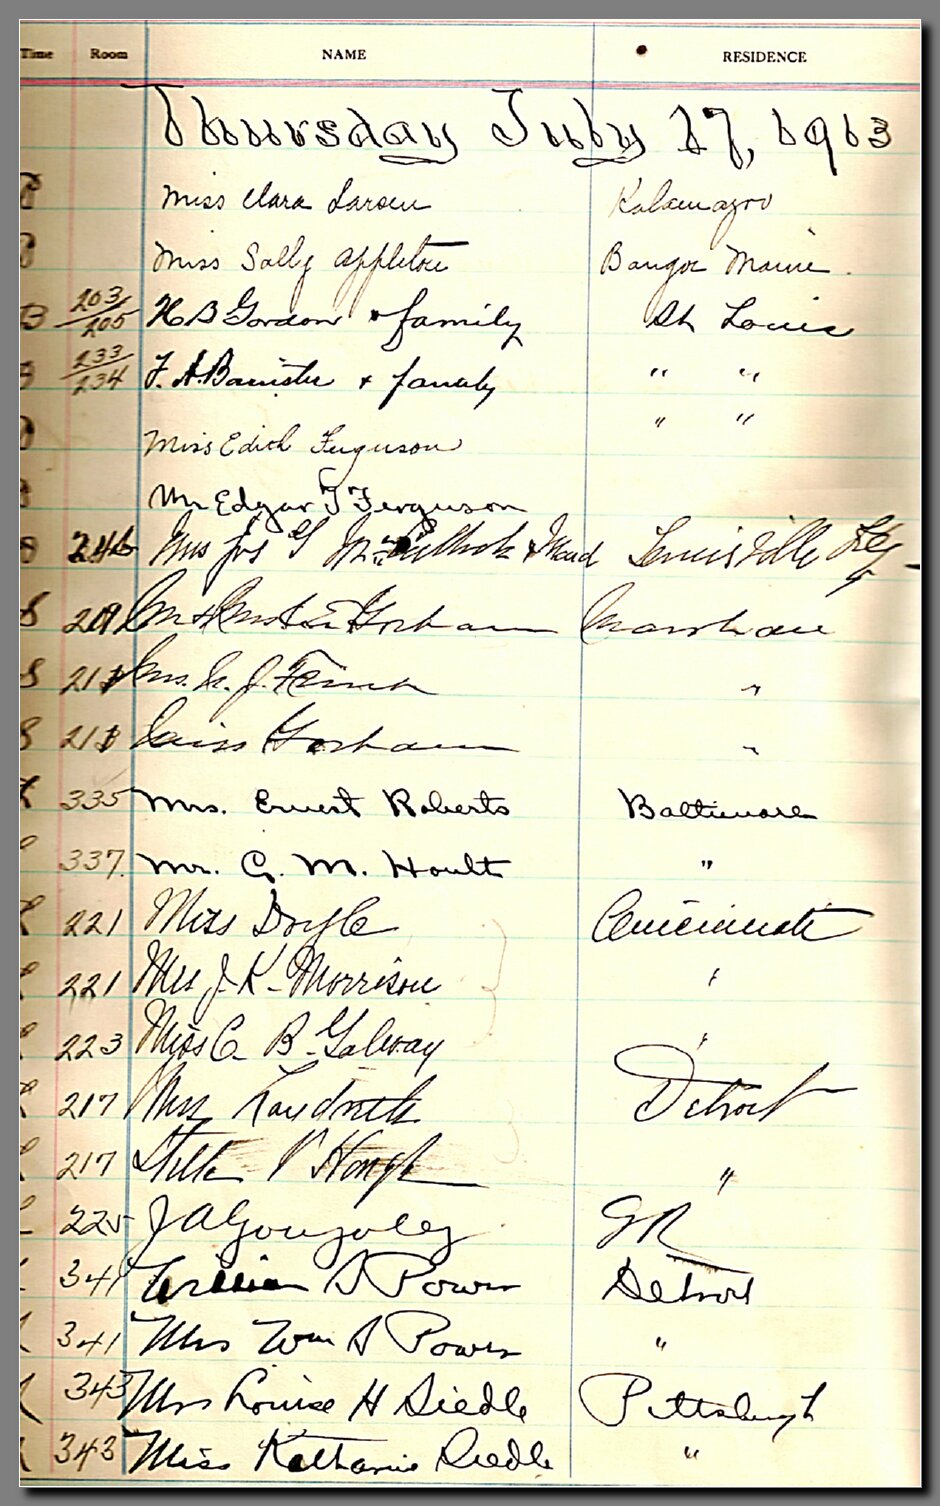 Time Room NAME RESIDENCE
Thursday July 17, 1913
Miss Clara Larsen Kalamazoo
Miss Sally Appleton Bangor Maine.
B 203/205 H B Gordon & family St Louis
233/234 F. A. Banister & family " "
Miss Edith Ferguson " "
Mr Edgar T Ferguson
246 Mrs Jos G & Maid Louisville Ky
S 219 Gorham
S 21 Mrs. J. "
S 21 Miss Gorham "
335 Mrs. Ernest Roberts Baltimore
337. Mr. G. M. Hoult "
221 Miss Doyle Cincinnati
221 Mrs J. K. Morrison "
223 Miss C. B. Galway "
217 Mrs Detroit
217 V Hough "
225 J A Gonzoley GR
341 William S Power Detroit
341 Mrs Wm S Power "
343 Mrs Louise H Siedle Pittsburgh
343 Miss Katharine Siedle "